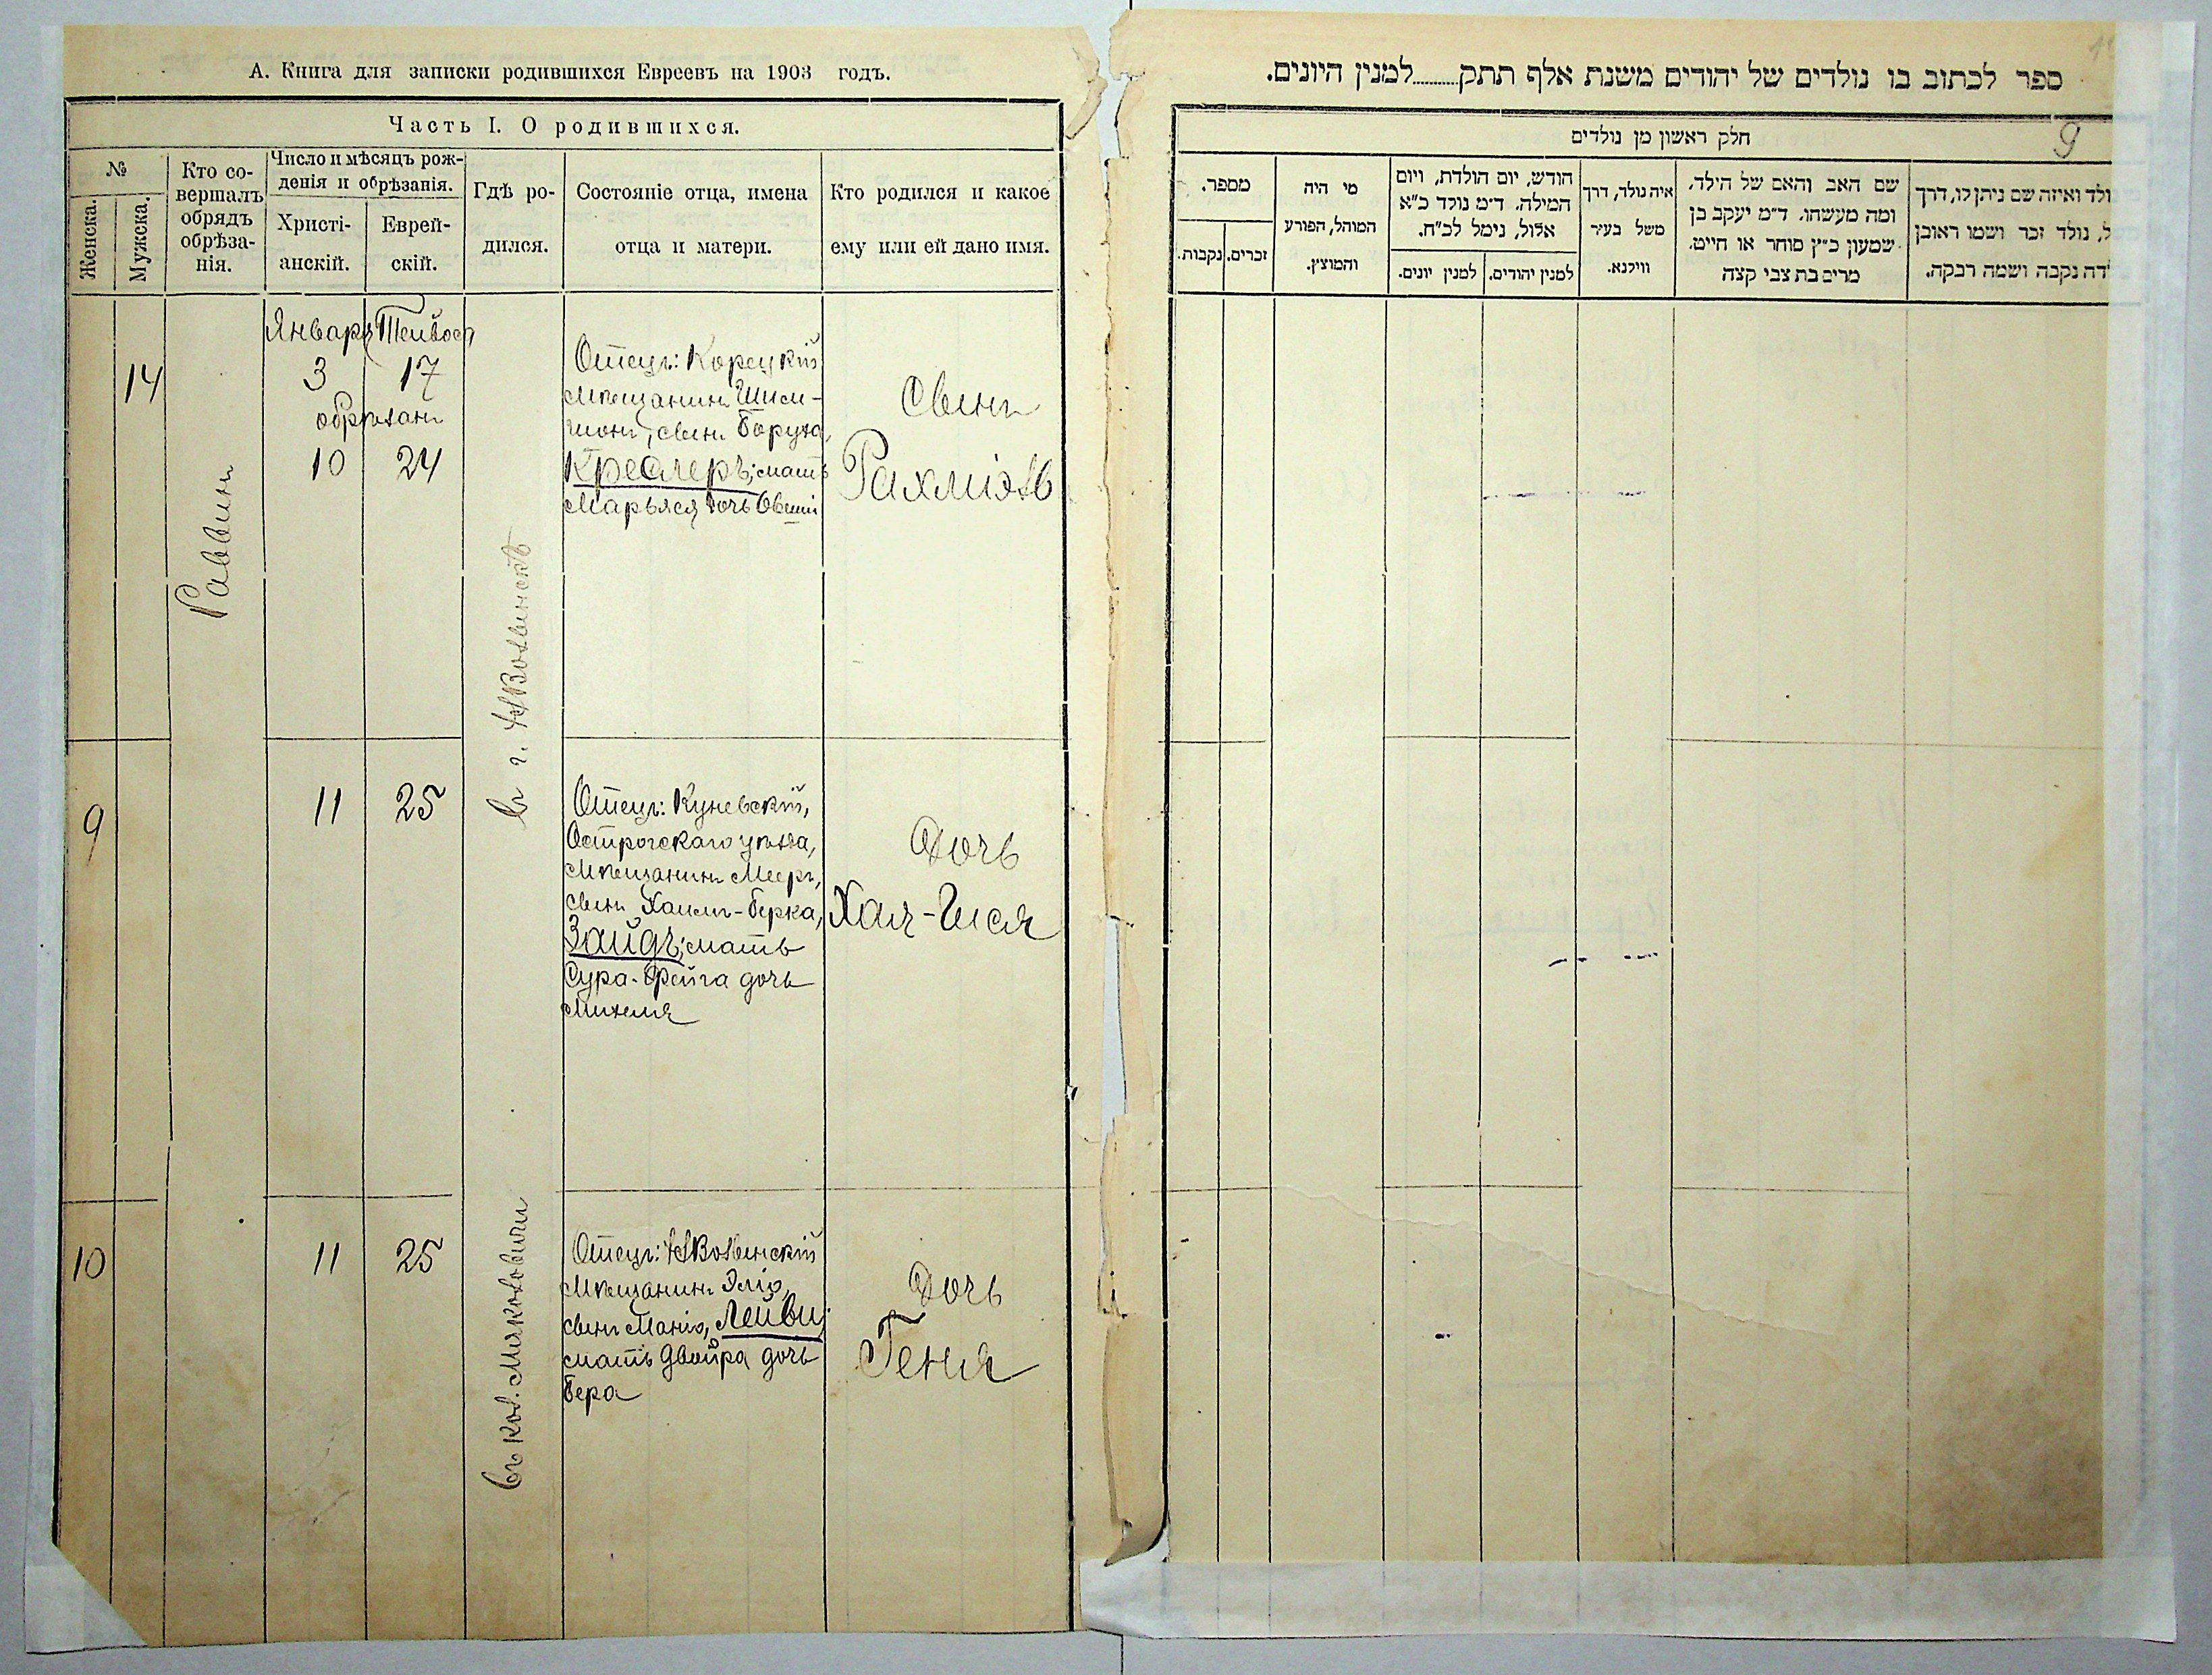 А. Книга для записки родившихся Евреевъ на 1903 годъ.
Часть I. О родившихся.
№
Женска.
Мужска.
Кто со-
вершалъ
обрядъ
обрѣза-
нія.
Число и мѣсяцъ рож-
денія и обрѣзанія.
Христі-
анскій.
Еврей-
скій.
Гдѣ ро-
дился.
Состояніе отца, имена
отца и матери.
Кто родился и какое
ему или ей дано имя.
14
Раввинъ
Января
Тейвеса
3 17
обрѣзанъ
10 24
Въ г. НВолынскѣ
Отецъ: Корецкій
мѣщанинъ Шим-
шонъ, сынъ Боруха,
Креслеръ; мать
Марьяся дочь Овшій
Сынъ
Рахміэль
9
11 25
Отецъ: Куневскій,
Острогскаго уѣзда,
мѣщанинъ Мееръ,
сынъ Хаимъ-Берка,
Зайдъ; мать
Сура-Фейга дочь
Михеля
Дочь
Хая-Гися
10
11 25
въ кол.
Отецъ: НВолынскій
мѣщанинъ Эліо,
сынъ Маніо, Лейви;
мать Двойра дочь
Бера
Дочь
Геня
ספר לכתוב בו נולדים של יהודים משנת אלף תתק........למנין היונים.
9
חלק ראשון מן נולדים
מספר.
זכרים.
נקבות.
מי היה
המוהל, הפורע
והמוצץ.
חודש, יום הולדת, ויום
המילה. ד״מ נולד כ״א
אלול, נימל לכ״ח.
למנין יהודים.
למנין יונים.
איה נולד, דרך
משל בעיר
ווילנא.
שם האב והאם של הילד,
ומה מעשהו. ד״מ יעקב בן
שמעון כ״ץ סוחר או חייט.
מרים בת צבי קצה
ולד ואיזה שם ניתן לו, דרך
ל, נולד זכר ושמו ראובן
דה נקבה ושמה רבקה.